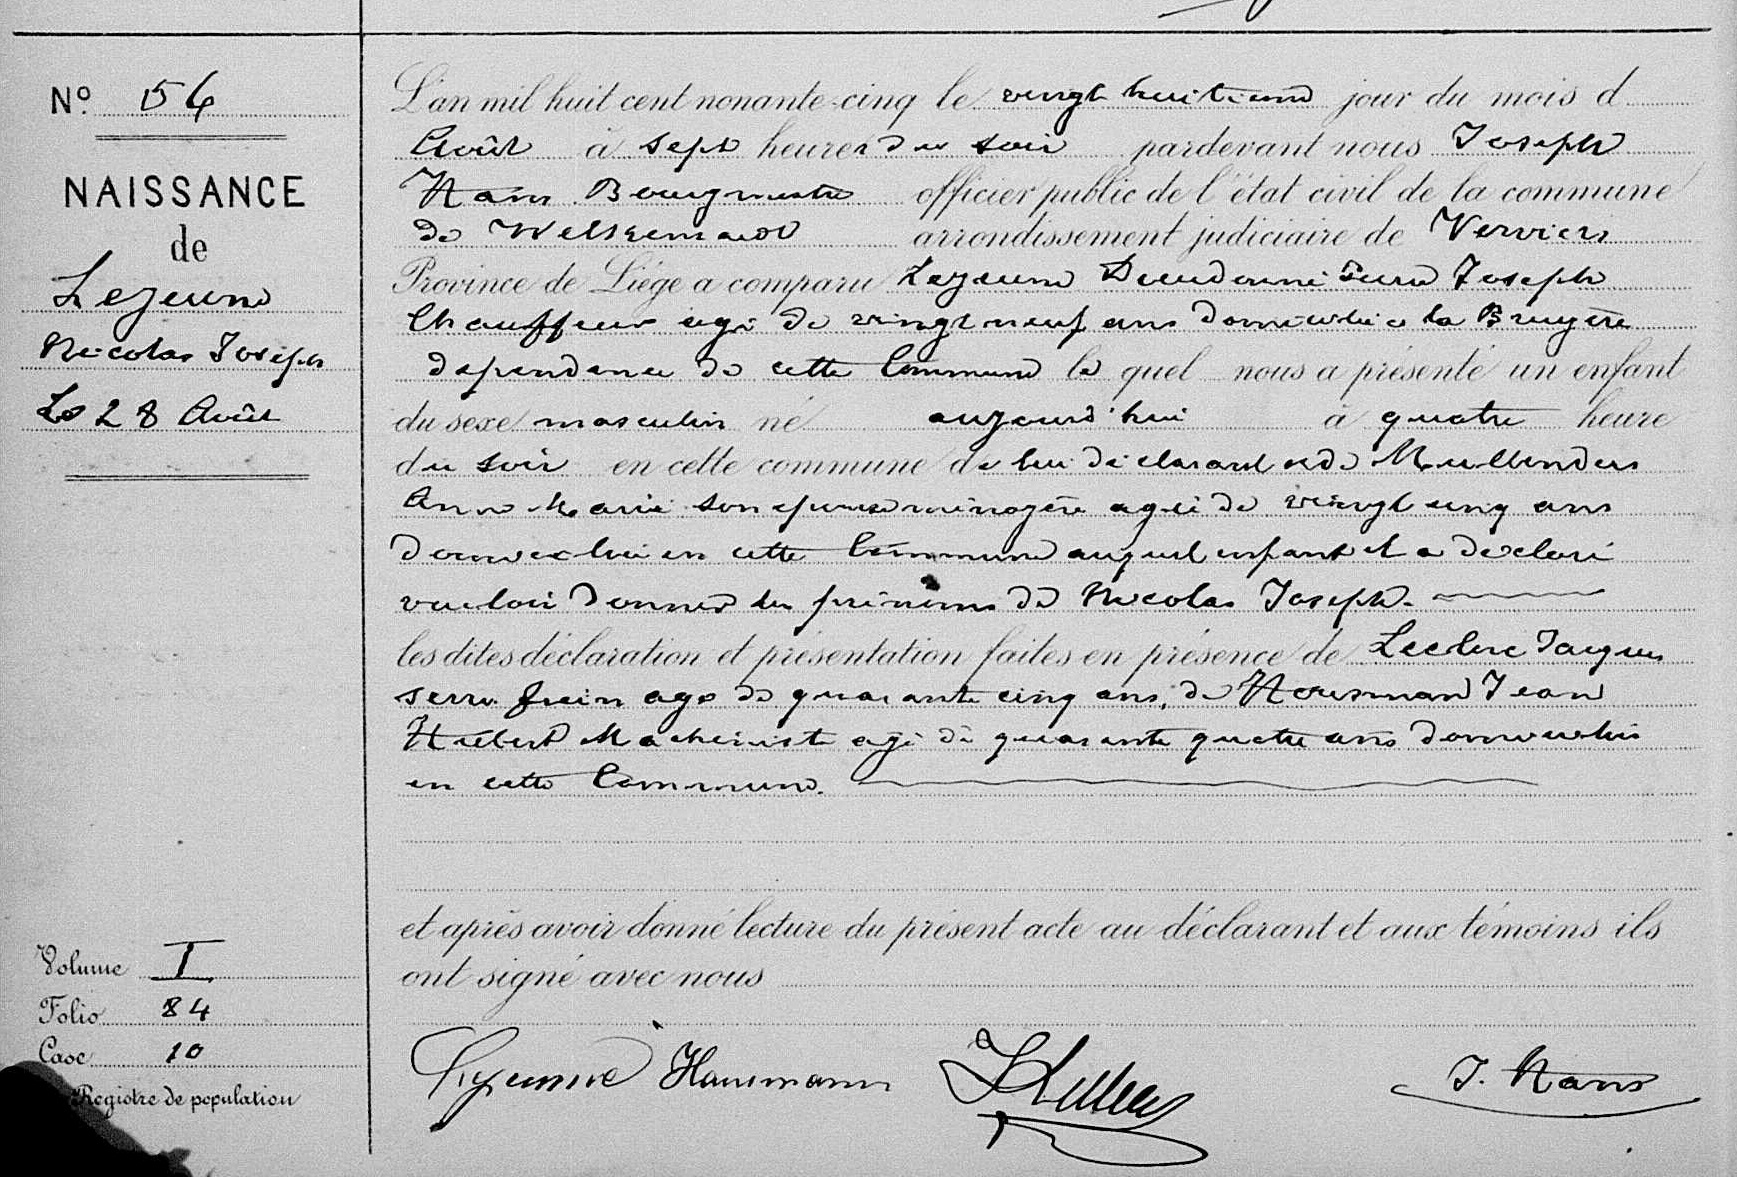 No. 54
NAISSANCE
de
Lejeune
Nicolas Joseph
Le 28 Août
L'an mil huit cent nonante-cinq le vingt huitième jour du mois d
Août à sept heures du soir pardevant nous Joseph
Hans Bourgmestre officier public de l'état civil de la commune
de Welkenraedt arrondissement judiciaire de Verviers
Province de Liége a comparu Lejeune Dieudonné Pierre Joseph
Chauffeur agé de vingt neuf ans domicilié à la Bruyère
dépendance de cette Commune le quel nous a présenté un enfant
du sexe masculin né aujourd'hui à quatre heure
du soir en cette commune de lui déclarant et de Mullenders
Anne Marie son épouse ménagère agée de vingt cinq ans
domiciliée en cette Commune auquel enfant il a déclaré
vouloir donner les prénoms de Nicolas Joseph.
les dites déclaration et présentation faites en présence de Leclerc Jacques
serre frein agé de quarante cinq ans, de Hausman Jean
Hubert Machiniste agé de quarante quatre ans domiciliés
en cette Commune.
et après avoir donné lecture du présent acte au déclarant et aux témoins ils
ont signé avec nous
Lejeune Hausmann J. Hans
Volume I
Folio 84
Case 10
Registre de population